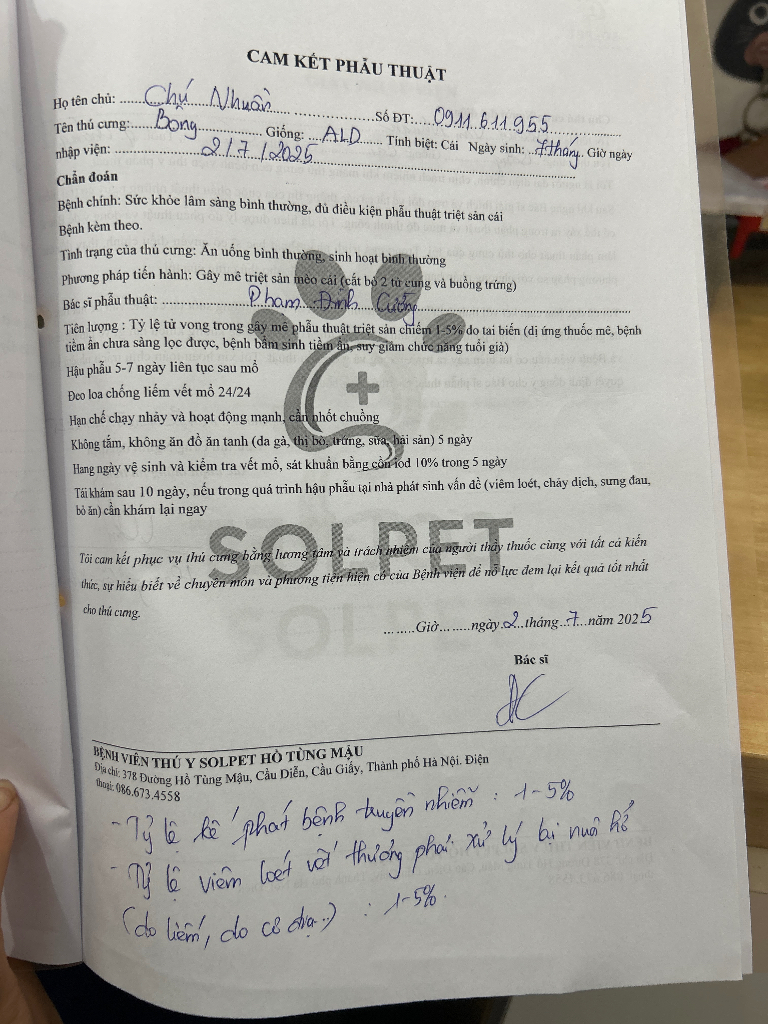 CAM KẾT PHẪU THUẬT
Họ tên chủ: Chú Nhuần Số ĐT: 0911.611.955
Tên thú cưng: Bong Giống: ALD Tính biệt: Cái Ngày sinh: 7 tháng. Giờ ngày
nhập viện: 2/7/2025
Chẩn đoán
Bệnh chính: Sức khỏe lâm sàng bình thường, đủ điều kiện phẫu thuật triệt sản cái
Bệnh kèm theo.
Tình trạng của thú cưng: Ăn uống bình thường, sinh hoạt bình thường
Phương pháp tiến hành: Gây mê triệt sản mèo cái (cắt bỏ 2 tử cung và buồng trứng)
Bác sĩ phẫu thuật: Phạm Đình Cường
Tiên lượng : Tỷ lệ tử vong trong gây mê phẫu thuật triệt sản chiếm 1-5% do tai biến (dị ứng thuốc mê, bệnh
tiềm ẩn chưa sàng lọc được, bệnh bẩm sinh tiềm ẩn, suy giảm chức năng tuổi già)
Hậu phẫu 5-7 ngày liên tục sau mổ
Đeo loa chống liếm vết mổ 24/24
Hạn chế chạy nhảy và hoạt động mạnh, cần nhốt chuồng
Không tắm, không ăn đồ ăn tanh (da gà, thị bò, trứng, sữa, hải sản) 5 ngày
Hang ngày vệ sinh và kiểm tra vết mổ, sát khuẩn bằng cồn iod 10% trong 5 ngày
Tái khám sau 10 ngày, nếu trong quá trình hậu phẫu tại nhà phát sinh vấn đề (viêm loét, chảy dịch, sưng đau,
bỏ ăn) cần khám lại ngay
SOLPET
Tôi cam kết phục vụ thú cưng bằng lương tâm và trách nhiệm của người thầy thuốc cùng với tất cả kiến
thức, sự hiểu biết về chuyên môn và phương tiện hiện có của Bệnh viện để nỗ lực đem lại kết quả tốt nhất
cho thú cưng.
........Giờ........ngày.2...tháng..7..năm 2025
Bác sĩ
BỆNH VIỆN THÚ Y SOLPET HỒ TÙNG MẬU
Địa chỉ: 378 Đường Hồ Tùng Mậu, Cầu Diễn, Cầu Giấy, Thành phố Hà Nội. Điện
thoại: 086.673.4558
- Tỷ lệ kế phát bệnh truyền nhiễm : 1-5%
- Tỷ lệ viêm loét vết thương phải xử lý lại
(do liếm, do cơ địa..) : 1-5%